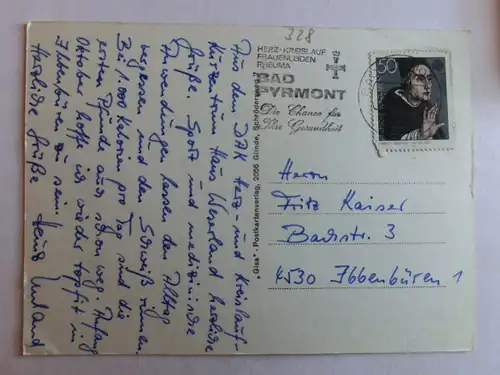 Aus dem DAK Herz- und Kreislauf-
Kurzentrum Haus Weserland herzliche
Grüße. Sport und medizinische
Anwendungen lassen den Alltag
vergessen und den Schweiß rinnen.
Bei 1.000 Kalorien pro Tag sind die
ersten Pfunde auch schon weg. Anfang
Oktober hoffe ich wieder topfit in
Ibbenbüren zu sein!
Herzliche Grüße
"Gisa" - Postkartenverlag, 2056 Glinde, Schröderweg 7
328
HERZ-KREISLAUF
FRAUENLEIDEN
RHEUMA
BAD
PYRMONT
Die Chance für
Ihre Gesundheit
50
Herrn
Fritz Kaiser
Bachstr. 3
4530 Ibbenbüren 1